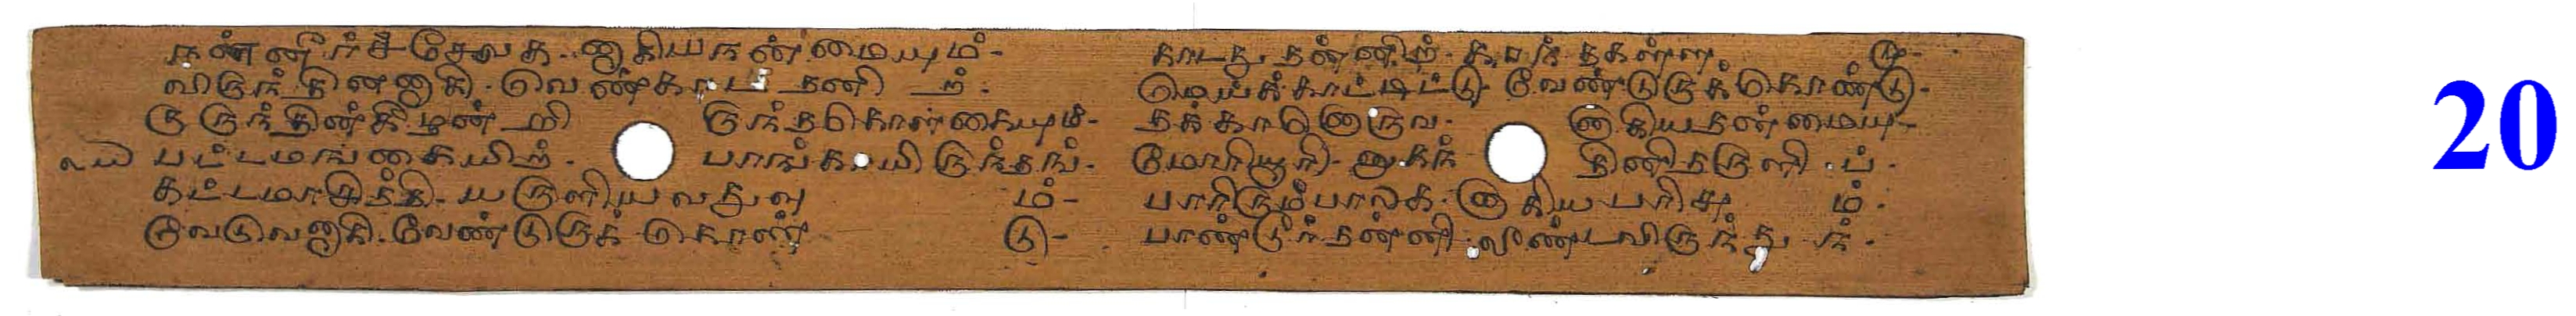 நன்னீர்ச்சேவக.னாகியநன்மையும்-
விருந்தினனாகி. வெண்காடதனி ற்.
குருந்தின்கீழன்றி ருந்தகொள்கையும்-
௨௰ பட்டமங்கையிற். பாங்காயிருந்தங்-
கட்டமாசித்தி-யருளியவதுவு ம்-
வேடுவனாகி. வேண்டுருக்கொண் டு-
காடது தன்னிற்-கரந்தகள்ள மு-
மெய்க்காட்டிட்டு வேண்டுருக்கொண்டு-
தக்கானொருவ- னாகியதன்மையு-
மோரியூரி-லுகந் தினிதருளி.ப்.
பாரிரும்பாலக-னாகியபரிசு ம்.
பாண்டூர்தன்னி.லீண்டவிருந்து ந்.
20